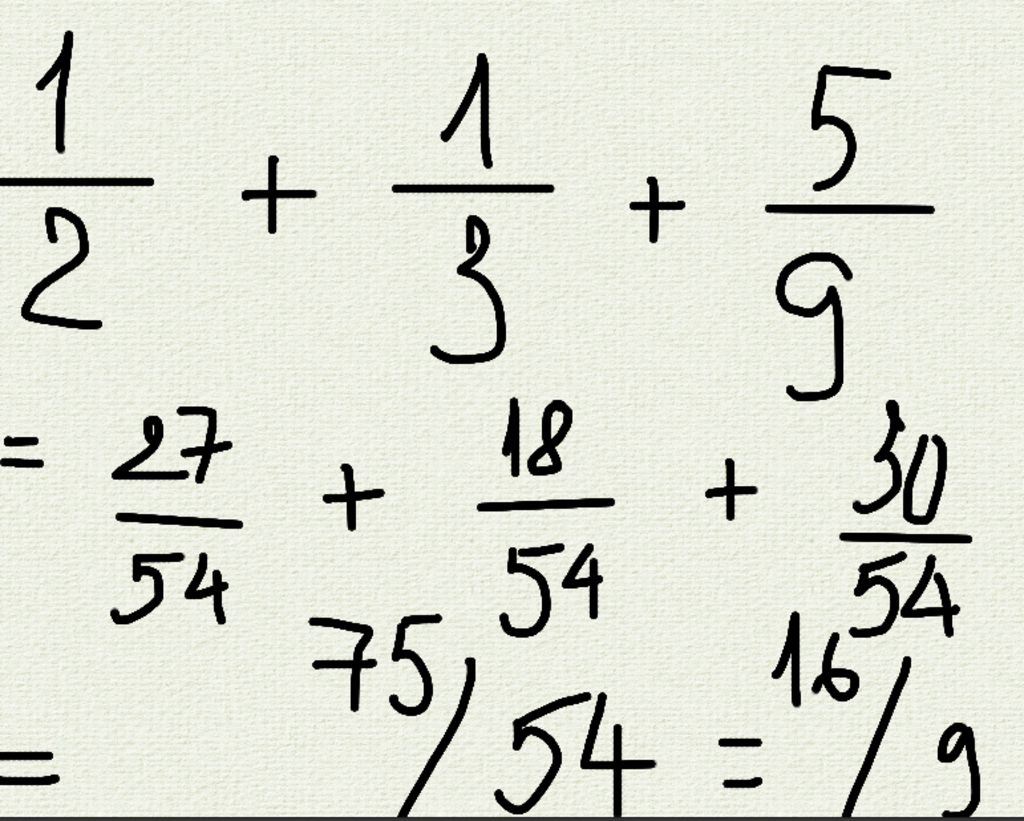 1/2 + 1/3 + 5/9
= 27/54 + 18/54 + 30/54
= 75/54 = 16/9